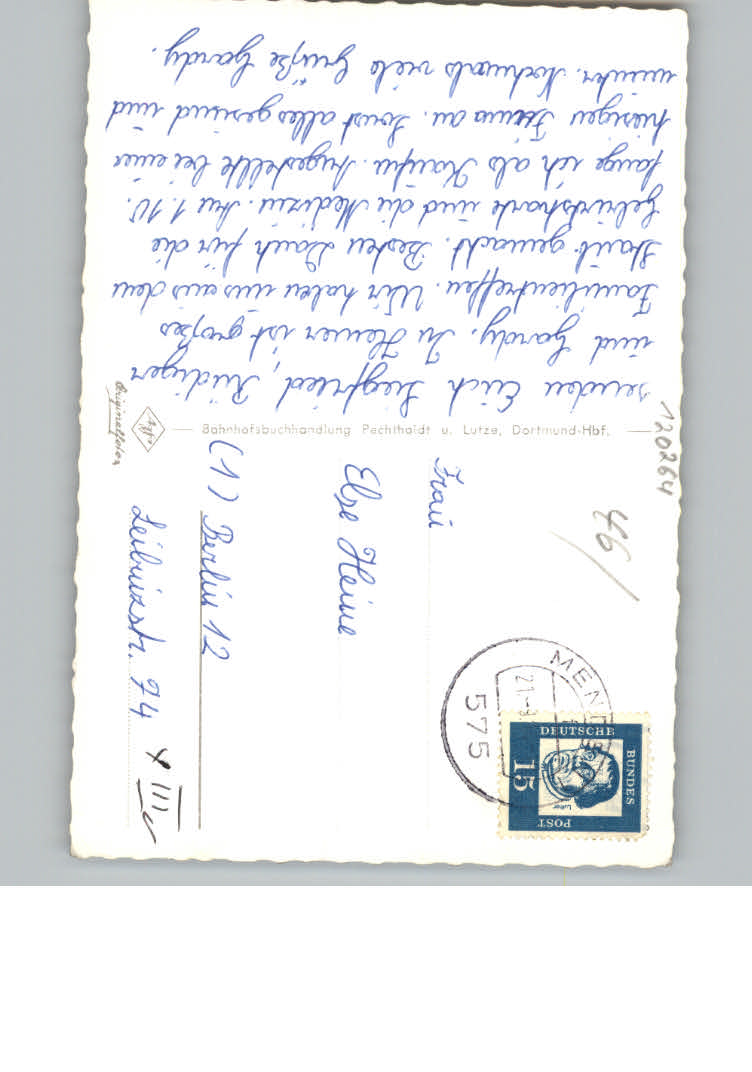 senden Euch Siegfried, Rüdiger
und Gardy. In Hemer ist großes
Familientreffen. Wir haben uns aus dem
Staub gemacht. Besten Dank für die
Geburtskarte und die Medizin. Am 1.10.
fange ich als Kaufm. Angestellte bei einer
hiesigen Firma an. Sonst alles gesund und
munter. Nochmals viele Grüße Gardy.
Bahnhofsbuchhandlung Pechtholdt u. Lutze, Dortmund-Hbf.
Agfa
Originalfotos
120264
46/
Frau
Else Heine
(1) Berlin 12
Leibnizstr. 74
III
575
DEUTSCHE
BUNDES
POST
15
Luther